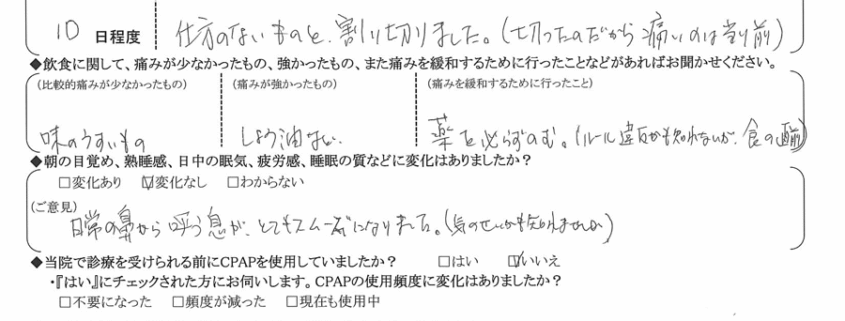 10 日程度 仕方のないものと、割り切りました。(切ったのだから痛いのは当り前)
◆飲食に関して、痛みが少なかったもの、強かったもの、また痛みを緩和するために行ったことなどがあればお聞かせください。
(比較的痛みが少なかったもの) (痛みが強かったもの) (痛みを緩和するために行ったこと)
味のうすいもの しょう油など、 薬を必らずのむ。(ルール違反かも知れないが、食の前)
◆朝の目覚め、熟睡感、日中の眠気、疲労感、睡眠の質などに変化はありましたか?
□変化あり ☑変化なし □わからない
(ご意見)
日常の鼻から呼う息が、とてもスムーズになりました。(気のせいかも知れませんが)
◆当院で診療を受けられる前にCPAPを使用していましたか? □はい ☑いいえ
・『はい』にチェックされた方にお伺いします。CPAPの使用頻度に変化はありましたか?
□不要になった □頻度が減った □現在も使用中